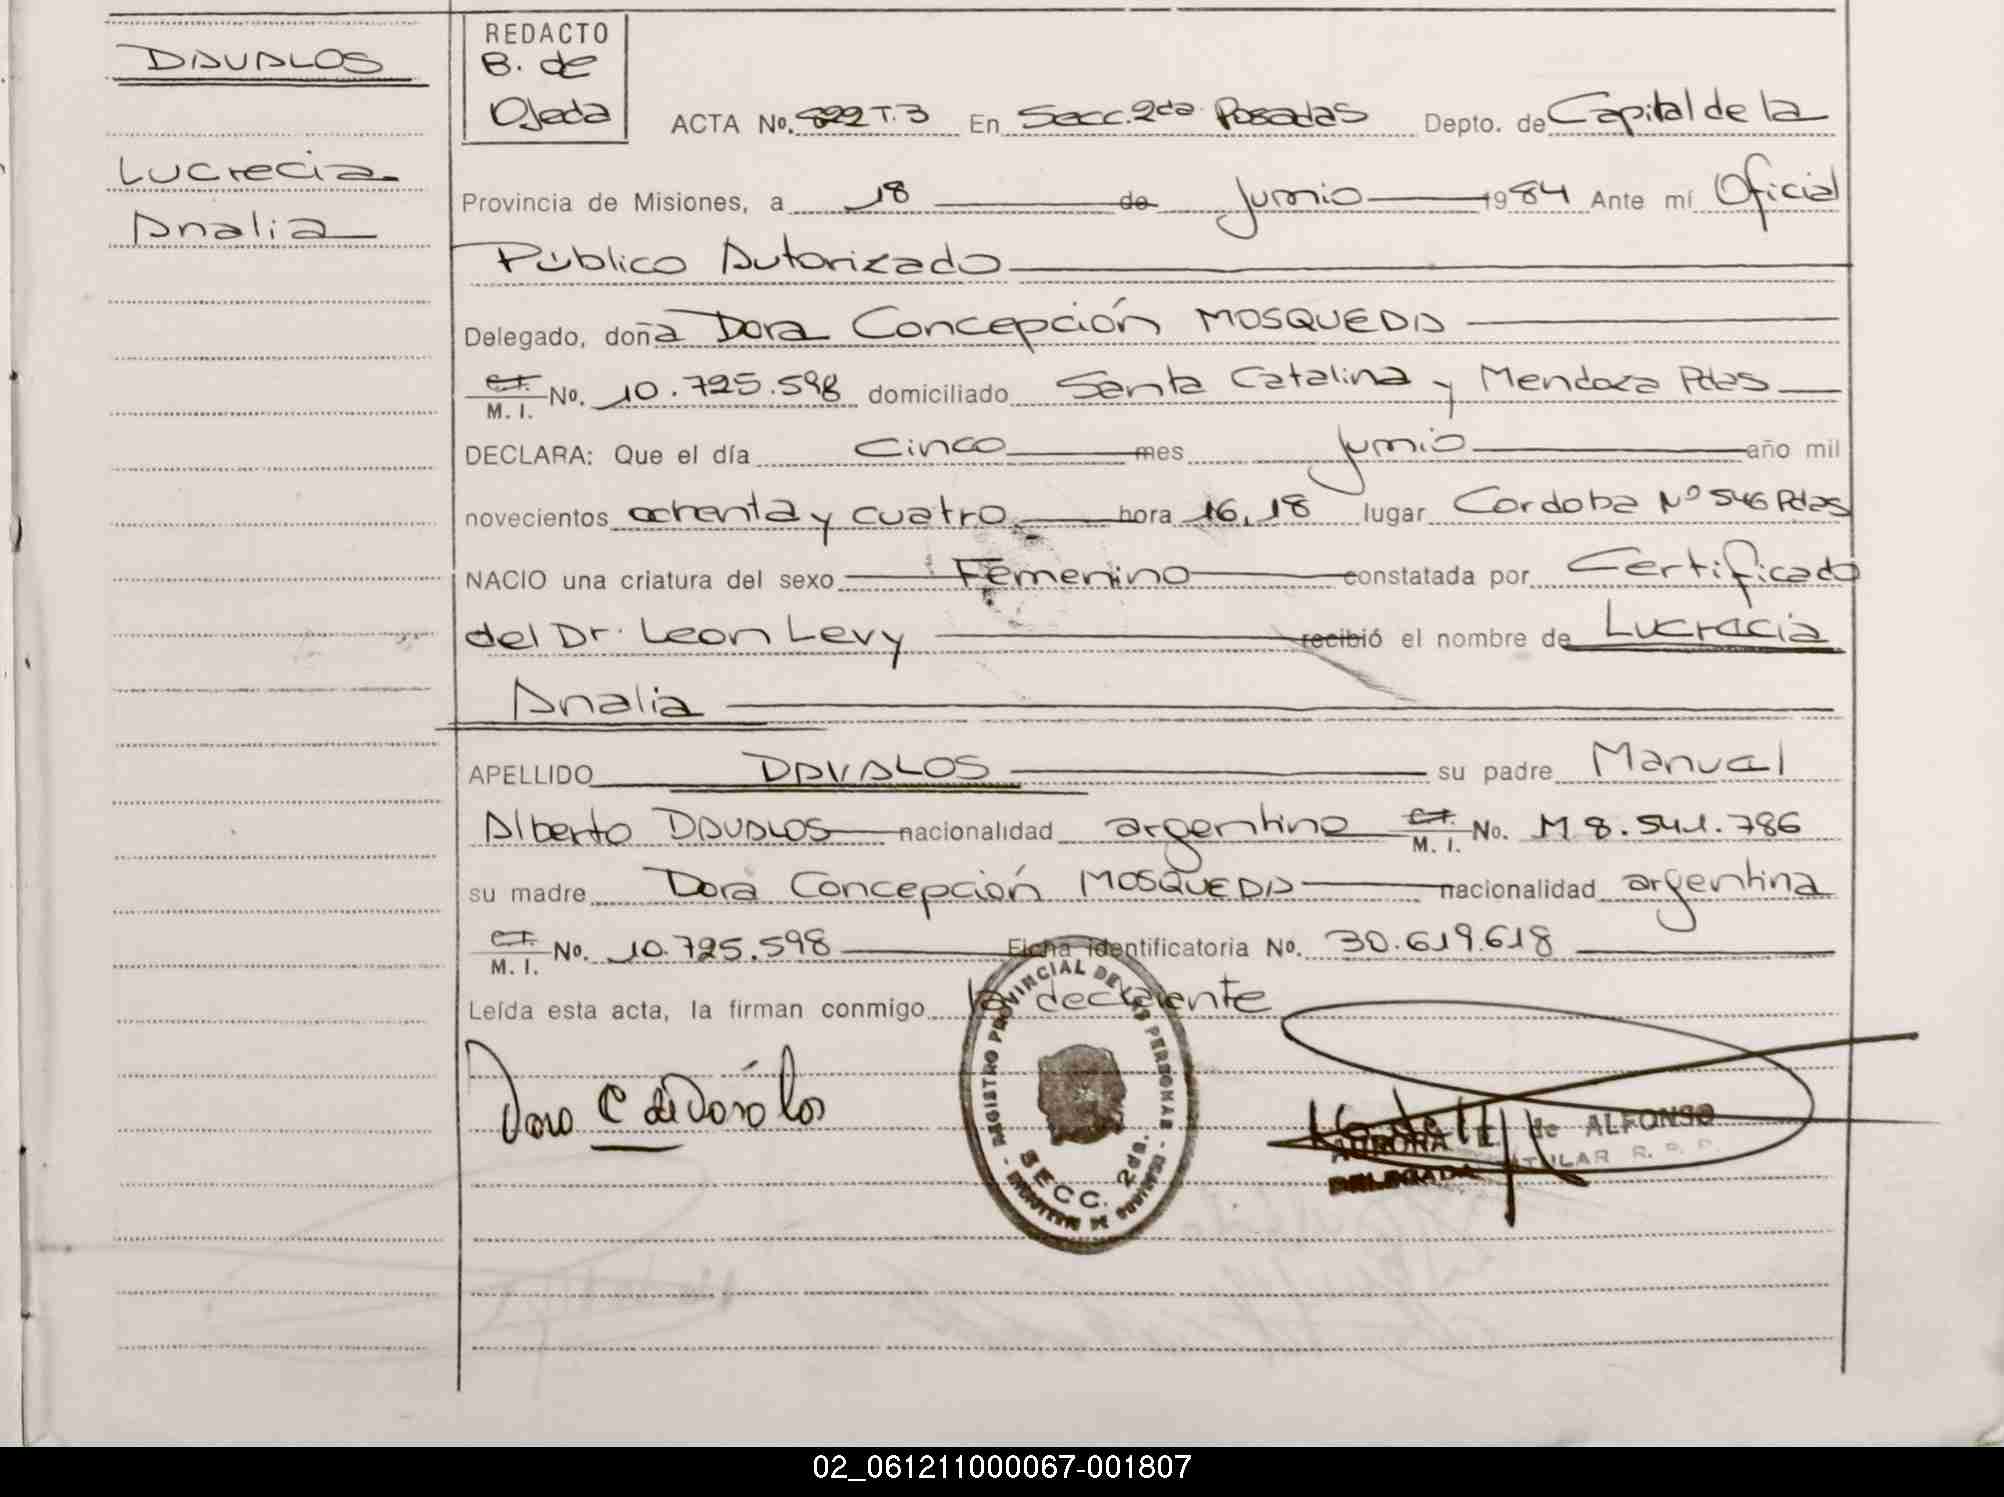 DAVALOS
Lucrecia
Analia
REDACTO
B. de
Ojeda
ACTA No. 822 T.3 En Secc. 2da Posadas Depto. de Capital de la
Provincia de Misiones, a 18 de Junio 1984 Ante mí Oficial
Público Autorizado
Delegado, doña Dora Concepción MOSQUEDA
C.I. M. I. No. 10.725.598 domiciliado Santa Catalina y Mendoza Pdas
DECLARA: Que el día cinco mes Junio año mil
novecientos ochenta y cuatro hora 16,18 lugar Cordoba Nº 546 Pdas
NACIO una criatura del sexo Femenino constatada por Certificado
del Dr. Leon Levy recibió el nombre de Lucrecia
Analia
APELLIDO DAVALOS su padre Manuel
Alberto DAVALOS nacionalidad argentino C.I. M. I. No. M 8.541.786
su madre Dora Concepción MOSQUEDA nacionalidad argentina
C.I. M. I. No. 10.725.598 Ficha identificatoria No. 30.619.618
Leída esta acta, la firman conmigo la declarante
Dora C de Dávalos
REGISTRO PROVINCIAL DE LAS PERSONAS
SECC. 2da.
MINISTERIO DE GOBIERNO
AURORA de ALFONSO
DELEGADA TITULAR R. P. P.
02_061211000067-001807